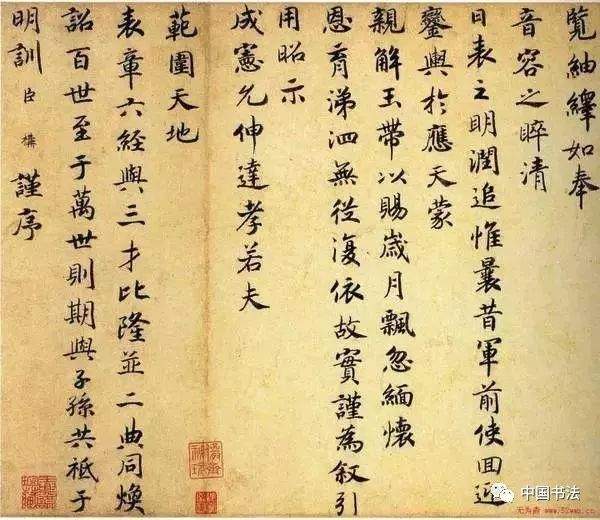 覽紬繹如奉
音容之睟清
日表之明潤追惟曩昔軍前使回迎
鑾輿於應天蒙
親解玉帶以賜歲月飄忽緬懷
恩育涕泗無從復依故實謹為叙引
用昭示
成憲允伸達孝若夫
範圍天地
表章六経與三才比隆並二典同煥
詔百世至于萬世則期與子孫共祗于
明訓臣構謹序
中国书法